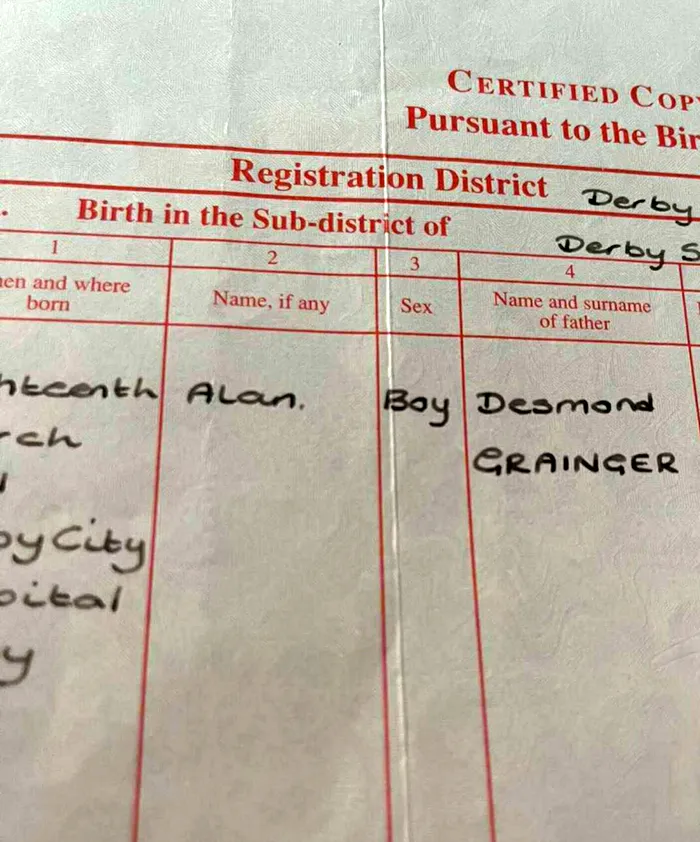 CERTIFIED COP
Pursuant to the Bir
Registration District Derby
. Birth in the Sub-district of Derby S
1 2 3 4
en and where born Name, if any Sex Name and surname of father
hteenth Alan. Boy Desmond
rch GRAINGER
by City
pital
y